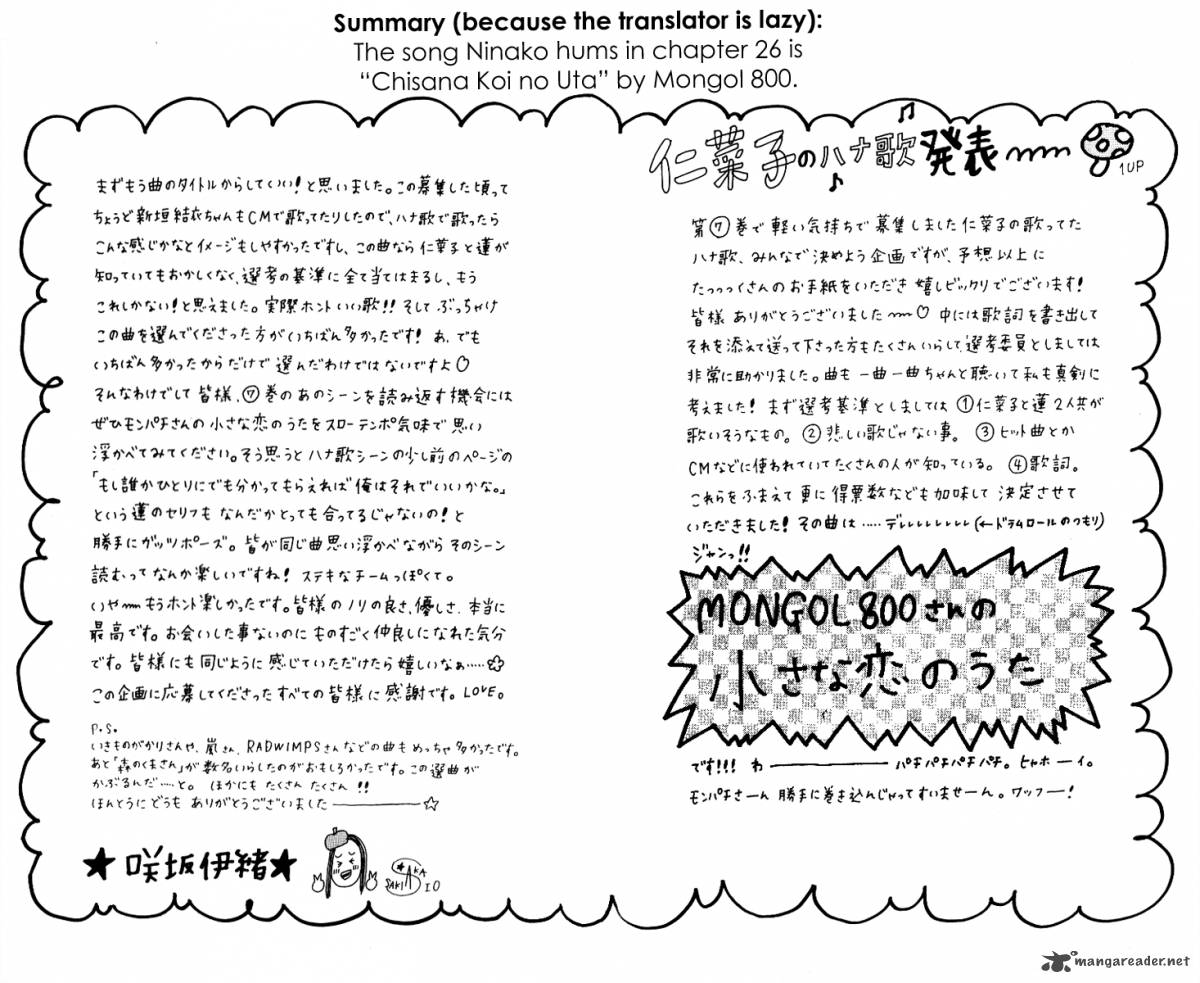 Summary (because the translator is lazy):
The song Ninako hums in chapter 26 is
“Chisana Koi no Uta” by Mongol 800.
仁菜子のハナ歌発表
1UP
第⑦巻で軽い気持ちで募集しました仁菜子の歌ってた
ハナ歌、みんなで決めよう企画ですが、予想以上に
たっっっくさんのお手紙をいただき嬉しビックリでございます!
皆様ありがとうございました〜♡ 中には歌詞を書き出して
それを添えて送って下さった方もたくさんいらして、選考委員としましては
非常に助かりました。曲も一曲一曲ちゃんと聴いて私も真剣に
考えました! まず選考基準としましては ①仁菜子と蓮2人共が
歌いそうなもの。 ②悲しい歌じゃない事。 ③ヒット曲とか
CMなどに使われていてたくさんの人が知っている。 ④歌詞。
これらをふまえて更に得票数なども加味して決定させて
いただきました! その曲は ‥‥‥デレレレレレレレレ(←ドラムロールのつもり)
ジャンっ!!
MONGOL800さんの
小さな恋のうた
です!!! わ――――― パチパチパチパチ。ヒャホーイ。
モンパチさーん勝手に巻き込んじゃってすいませーん。ワッフー!
まずもう曲のタイトルからしていい!と思いました。この募集した頃って
ちょうど新垣結衣ちゃんもCMで歌ってたりしたので、ハナ歌で歌ったら
こんな感じかなとイメージもしやすかったですし、この曲なら仁菜子と蓮が
知っていてもおかしくなく、選考の基準に全て当てはまるし、もう
これしかない!と思えました。実際ホントいい歌!! そしてぶっちゃけ
この曲を選んでくださった方がいちばん多かったです! あ、でも
いちばん多かったからだけで選んだわけではないですよ♡
そんなわけでして皆様、⑦巻のあのシーンを読み返す機会には
ぜひモンパチさんの小さな恋のうたをスローテンポ気味で思い
浮かべてみてください。そう思うとハナ歌シーンの少し前のページの
「もし誰かひとりにでも分かってもらえれば俺はそれでいいかな。」
という蓮のセリフもなんだかとっても合ってるじゃないの!と
勝手にガッツポーズ。皆が同じ曲思い浮かべながらそのシーン
読むってなんか楽しいですね! ステキなチームっぽくて。
いや〜もうホント楽しかったです。皆様のノリの良さ、優しさ、本当に
最高です。お会いした事ないのにものすごく仲良しになれた気分
です。皆様にも同じように感じていただけたら嬉しいなぁ‥‥‥☆
この企画に応募してくださったすべての皆様に感謝です。LOVE。
P.S.
いきものがかりさんや、嵐さん、RADWIMPSさんなどの曲もめっちゃ多かったです。
あと「森のくまさん」が数名いらしたのがおもしろかったです。この選曲が
かぶるんだ‥‥‥と。 ほかにもたくさんたくさん!!
ほんとうにどうもありがとうございました―――――☆
★咲坂伊緒★
SAKISAKA IO
mangareader.net